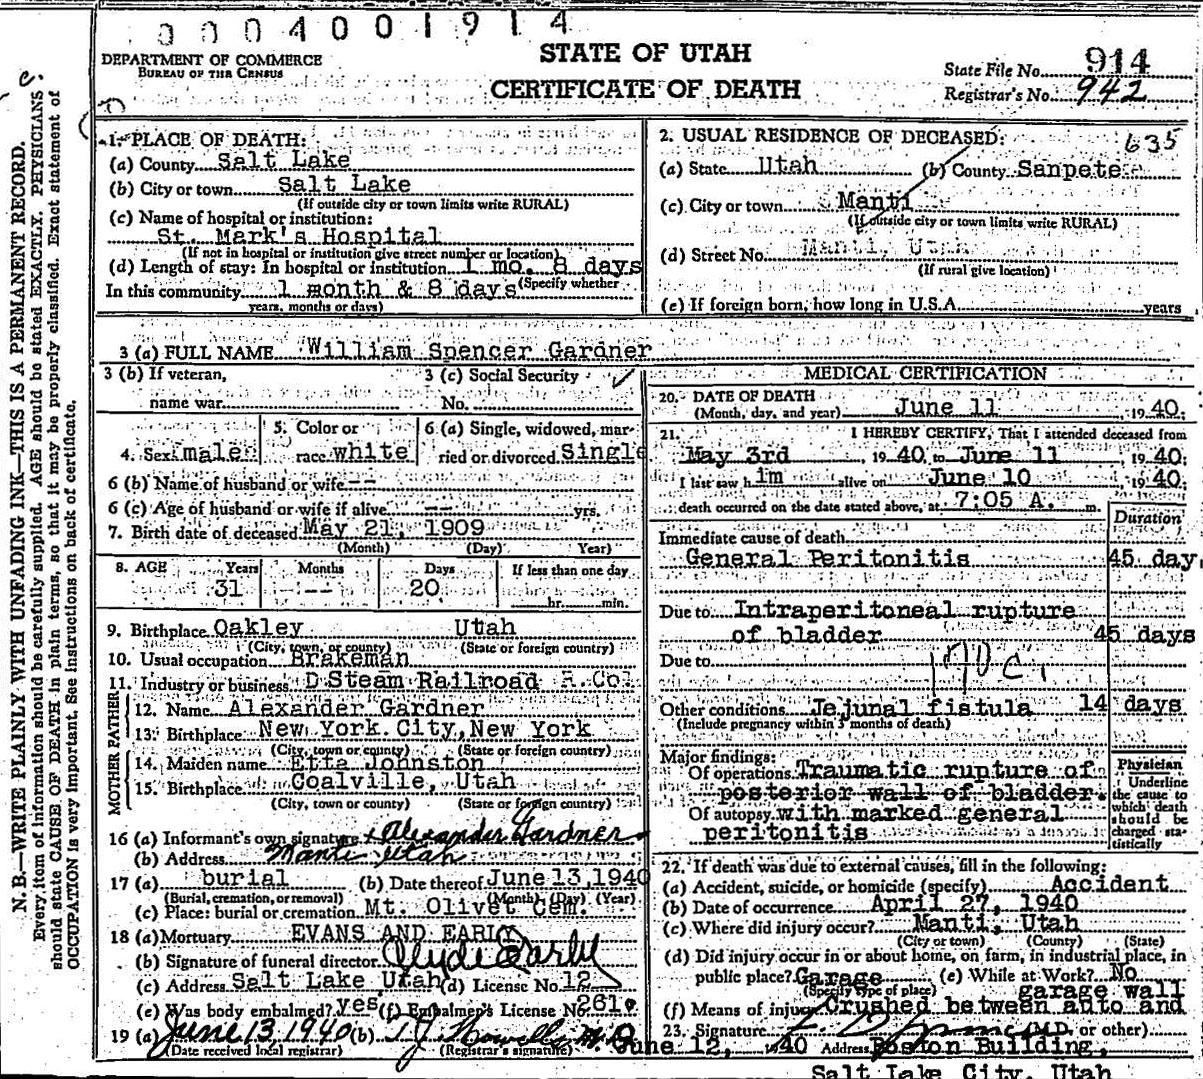 0004001914
DEPARTMENT OF COMMERCE
BUREAU OF THE CENSUS
STATE OF UTAH
CERTIFICATE OF DEATH
State File No. 914
Registrar's No. 942
N. B.—WRITE PLAINLY WITH UNFADING INK—THIS IS A PERMANENT RECORD.
Every item of information should be carefully supplied. AGE should be stated EXACTLY. PHYSICIANS
should state CAUSE OF DEATH in plain terms, so that it may be properly classified. Exact statement of
OCCUPATION is very important. See instructions on back of certificate.
1. PLACE OF DEATH:
(a) County Salt Lake
(b) City or town Salt Lake
(If outside city or town limits write RURAL)
(c) Name of hospital or institution:
St. Mark's Hospital
(If not in hospital or institution give street number or location)
(d) Length of stay: In hospital or institution 1 mo. 8 days
(Specify whether
In this community 1 month & 8 days
years, months or days)
2. USUAL RESIDENCE OF DECEASED:
635
(a) State Utah (b) County Sanpete
(c) City or town Manti
(If outside city or town limits write RURAL)
(d) Street No. Manti, Utah
(If rural give location)
(e) If foreign born, how long in U.S.A. years
3 (a) FULL NAME William Spencer Gardner
3 (b) If veteran, 3 (c) Social Security
name war No.
4. Sex male 5. Color or race white 6 (a) Single, widowed, married or divorced Single
6 (b) Name of husband or wife --
6 (c) Age of husband or wife if alive -- yrs.
7. Birth date of deceased May 21, 1909
(Month) (Day) Year)
8. AGE Years Months Days If less than one day
31 -- 20 hr. min.
9. Birthplace Oakley Utah
(City, town, or county) (State or foreign country)
10. Usual occupation Brakeman
11. Industry or business D Steam Railroad R. Co.
FATHER
12. Name Alexander Gardner
13. Birthplace New York City, New York
(City, town or county) (State or foreign country)
MOTHER
14. Maiden name Etta Johnston
15. Birthplace Coalville, Utah
(City, town or county) (State or foreign country)
16 (a) Informant's own signature x Alexander Gardner
(b) Address Manti Utah
17 (a) burial (b) Date thereof June 13, 1940
(Burial, cremation, or removal) (Month) (Day) (Year)
(c) Place: burial or cremation Mt. Olivet Cem.
18 (a) Mortuary EVANS AND EARLY
(b) Signature of funeral director Clyde Early
(c) Address Salt Lake Utah (d) License No. 12
(e) Was body embalmed? yes (f) Embalmer's License No. 261
19 (a) June 13, 1940 (b) T. J. Howells M.D.
(Date received local registrar) (Registrar's signature)
MEDICAL CERTIFICATION
20. DATE OF DEATH
(Month, day, and year) June 11, 1940.
21. I HEREBY CERTIFY, That I attended deceased from
May 3rd, 1940 to June 11, 1940.
I last saw him alive on June 10, 1940.
death occurred on the date stated above, at 7:05 A. m.
Duration
Immediate cause of death
General Peritonitis 45 day
Due to Intraperitoneal rupture
of bladder 45 days
Due to 170c.
Other conditions Jejunal fistula 14 days
(Include pregnancy within 3 months of death)
Major findings:
Of operations Traumatic rupture of
posterior wall of bladder.
Of autopsy with marked general
peritonitis
Physician
Underline
the cause to
which death
should be
charged sta-
tistically
22. If death was due to external causes, fill in the following:
(a) Accident, suicide, or homicide (specify) Accident
(b) Date of occurrence April 27, 1940
(c) Where did injury occur? Manti, Utah
(City or town) (County) (State)
(d) Did injury occur in or about home, on farm, in industrial place, in
public place? Garage (e) While at Work? No
(Specify type of place) garage wall
(f) Means of injury Crushed between auto and
23. Signature (M.D. or other)
June 12, 1940 Address Boston Building,
Salt Lake City, Utah